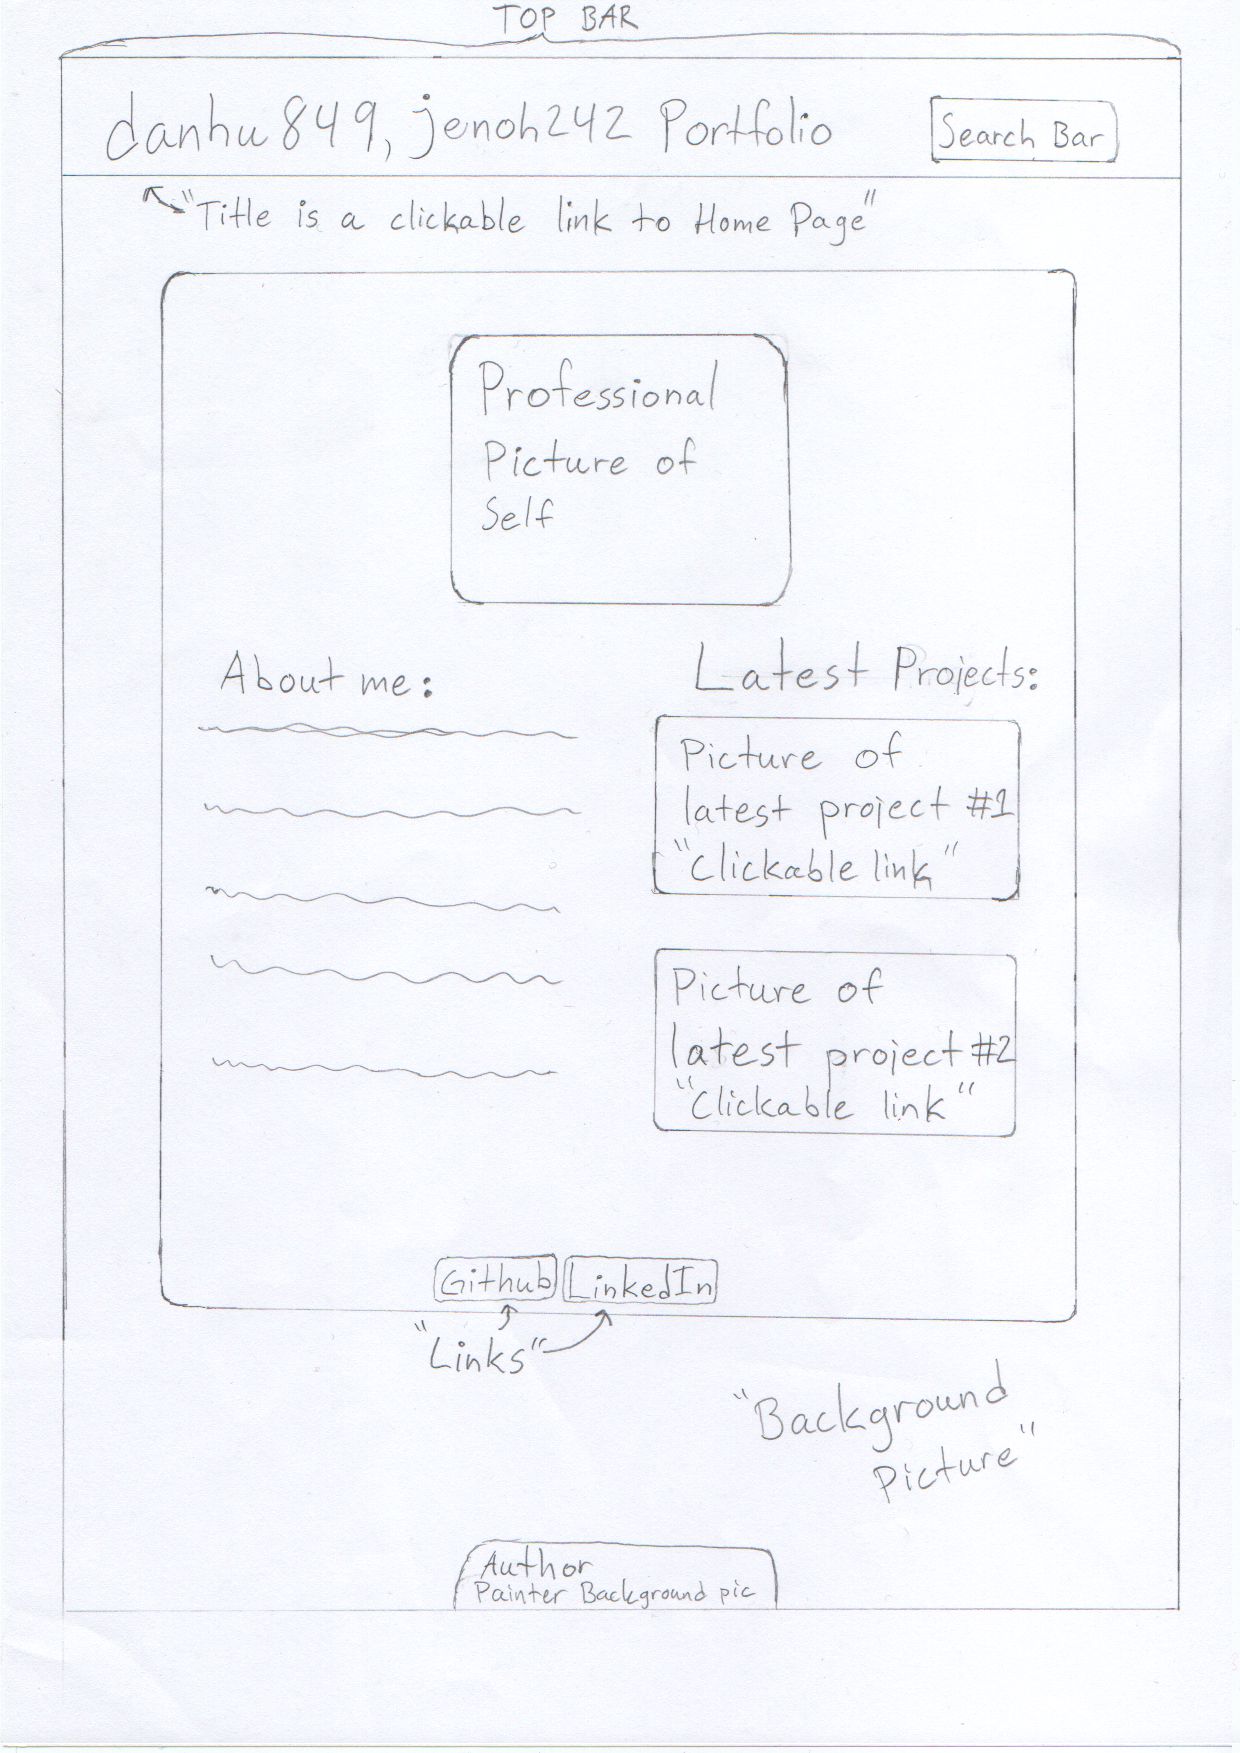 TOP BAR
danhu849, jenoh242 Portfolio
Search Bar
"Title is a clickable link to Home Page"
Professional
Picture of
Self
About me:
Latest Projects:
Picture of
latest project #1
"Clickable link"
Picture of
latest project #2
"Clickable link"
Github
LinkedIn
"Links"
"Background
Picture"
Author
Painter Background pic